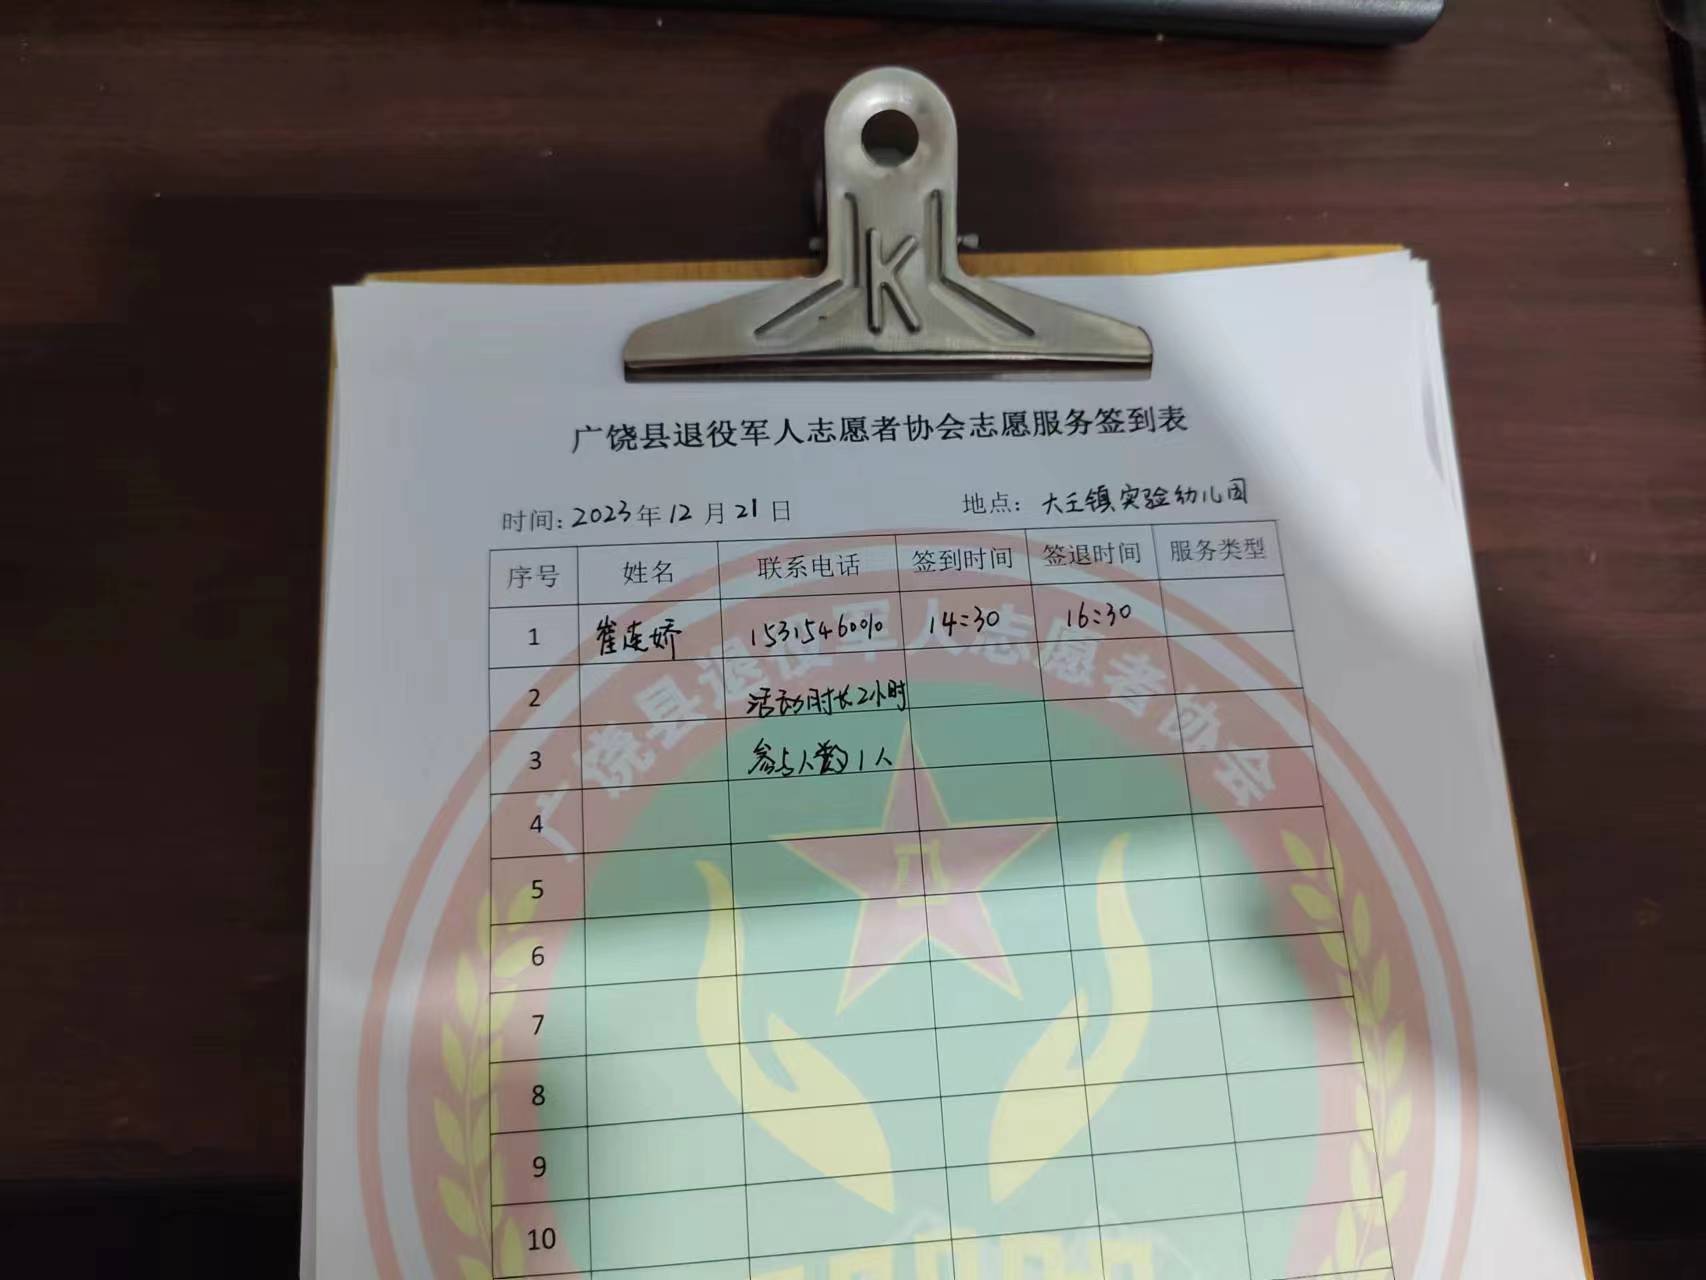 K
广饶县退役军人志愿者协会志愿服务签到表
时间: 2023 年 12 月 21 日 地点: 大王镇实验幼儿园
序号 姓名 联系电话 签到时间 签退时间 服务类型
1 崔连娇 14:30 16:30
2 活动时长2小时
3 参与人数1人
4
5
6
7
8
9
10
广饶县退役军人志愿者协会
八一